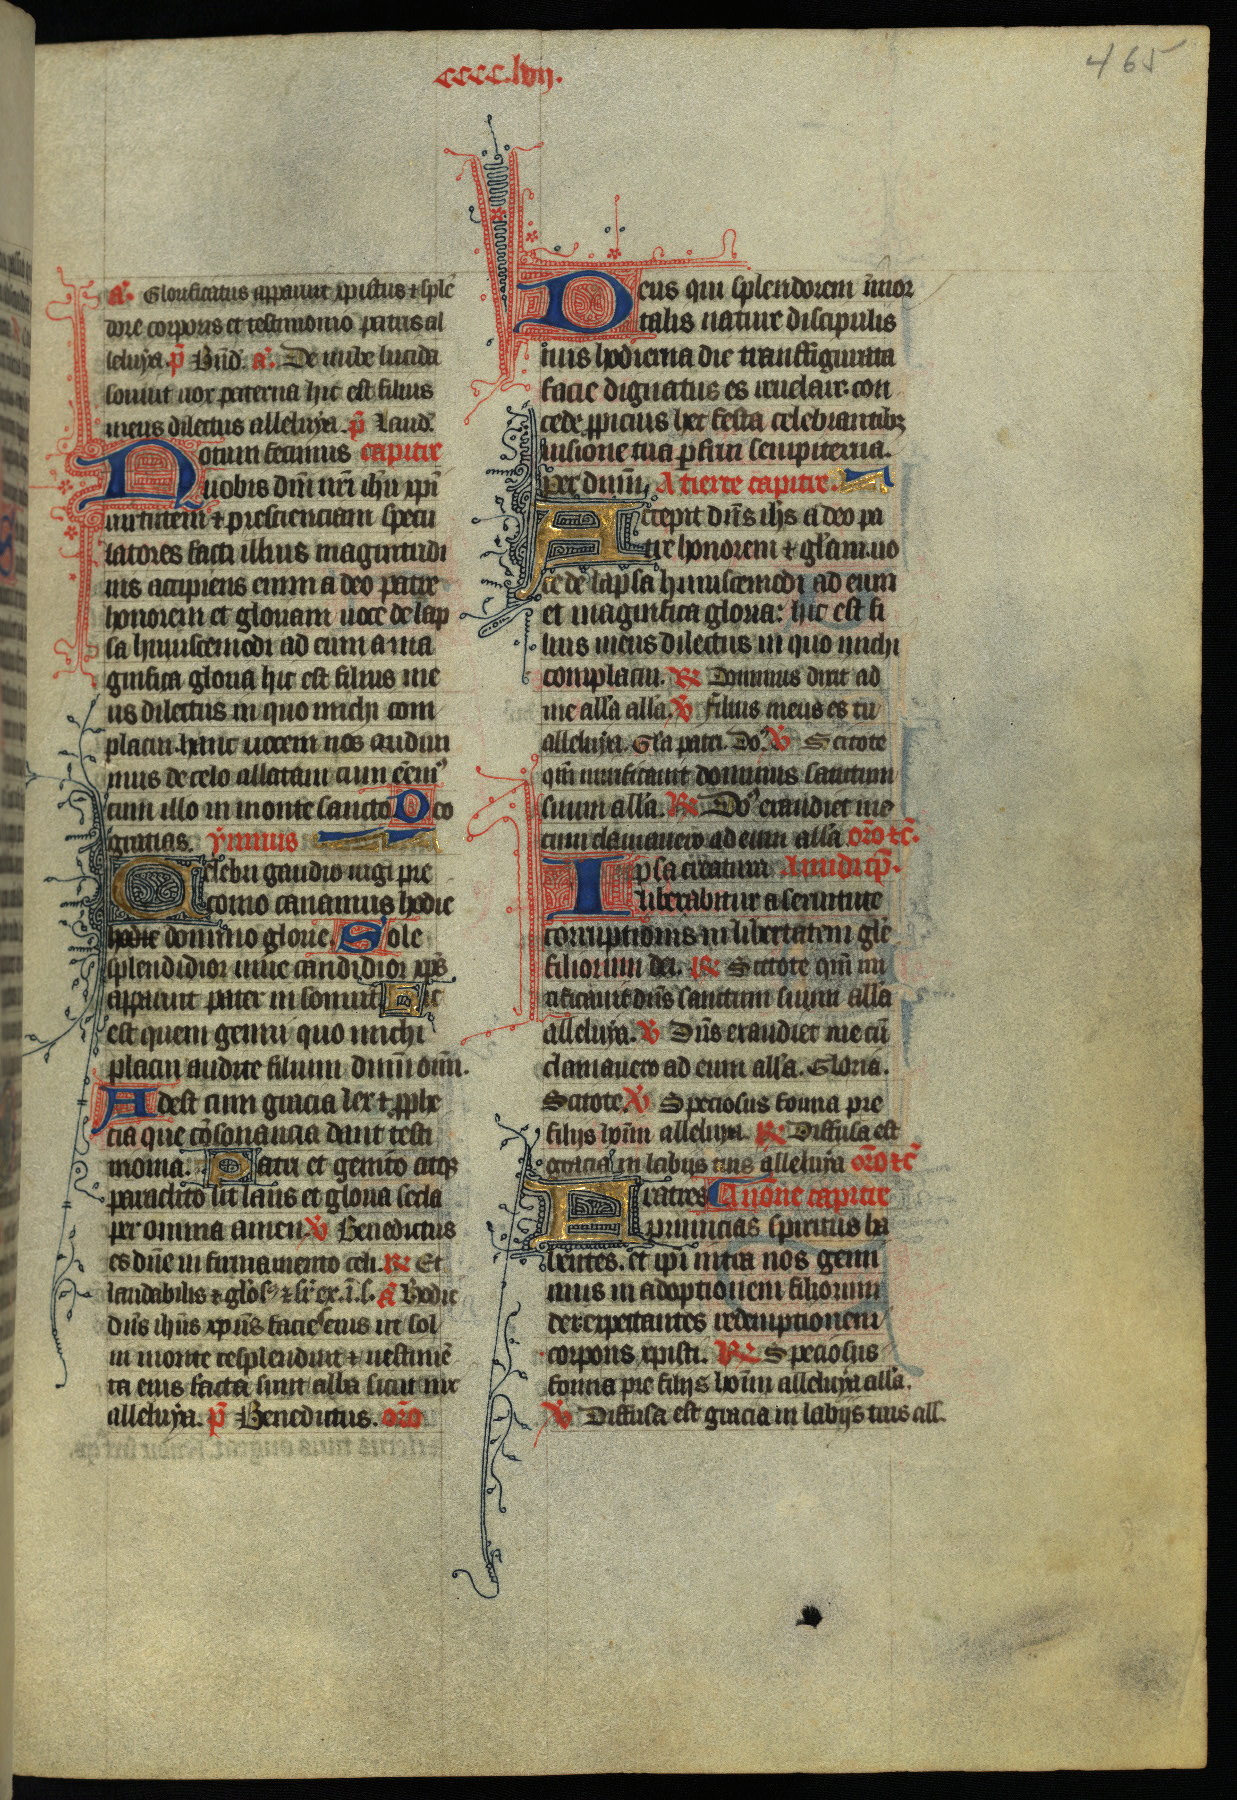 cccc.lvij.
465
a. Glorificatus apparuit xpistus ⁊ sple
dore corporis et testimonio patris al
leluya. p̄ Bn̄d. a. De nube lucida
sonuit uox paterna hic est filius
meus dilectus alleluya. p̄ Laud.
Notum fecimus capitre
uobis dn̄i nr̄i ih̄u xp̄i
uirtutem ⁊ presciençiam specu
latores facti illius magnitudi
nis accipiens enim a deo patre
honorem et gloriam uoce de lap
sa huiuscemodi ad eum a ma
gnifica gloria hic est filius me
us dilectus in quo michi com
placui. hanc uocem nos audiui
mus de celo allatam cum eēm⁹
cum illo in monte sancto Deo
gratias. ymnus
Celebri gaudio iugi pre
conio canamus hodie
hodie domino glorie. Sole
splendidior niue candidior xp̄s
apparuit pater in sonuit Hic
est quem genui quo michi
placui audite filium dn̄m om̄.
Adest cum gracia lex ⁊ pphe
cia que cōsonancia dant testi
monia. Patri et genito atq3
paraclito sit laus et gloria secla
per omnia amen. V Benedictus
es dn̄e in firmamento celi. R Et
laudabilis ⁊ glōs⁹ ⁊ sr̄ ex. ī. s. A Hodie
dn̄s ih̄us xp̄us facie eius ut sol
in monte resplenduit ⁊ uestimē
ta eius facta sunt alba sicut nix
alleluya. p̄ Benedictus. oro
Deus qui splendorem īmor
talis nature discipulis
tuis hodierna die transfigurata
facie dignatus es reuelare. con
cede ppicius hec festa celebrantib3
uisione tua pfrui sempiterna.
Per dum̄. A tierte capitre.
Accepit dn̄s ih̄s a deo pa
tre honorem ⁊ gl̄am. uo
ce de lapsa huiuscemodi ad eum
et magnifica gloria: hic est fi
lius meus dilectus in quo michi
complacui. R Dominus dixit ad
me all'a all'a. V filius meus es tu
alleluya. Gl'a patri. Do⁹. V Scitote
qm̄ mirificauit dominus sanctum
suum all'a. R Do⁹ exaudiet me
cum clamauero ad eum all'a. oro ⁊c̄.
Ipsa creatura A midi cp̄.
liberabitur a seruitute
corruptionis in libertatem glē
filiorum dei. R Scitote qm̄ mi
rificauit dn̄s sanctum suum all'a
alleluya. V Dn̄s exaudiet me cū
clamauero ad eum all'a. Gloria.
Scitote. V Speciosus forma pre
filijs hoim̄ alleluya. R Diffusa est
gracia in labijs tuis alleluya oro ⁊c̄
Fratres A none capitre
primicias spiritus ha
bentes. et ip̄i intra nos gemi
mus in adoptionem filiorum
dei expectantes redemptionem
corporis xpisti. R Speciosus
forma pre filijs hoim̄ alleluya all'a.
V Diffusa est gracia in labijs tuis all'.